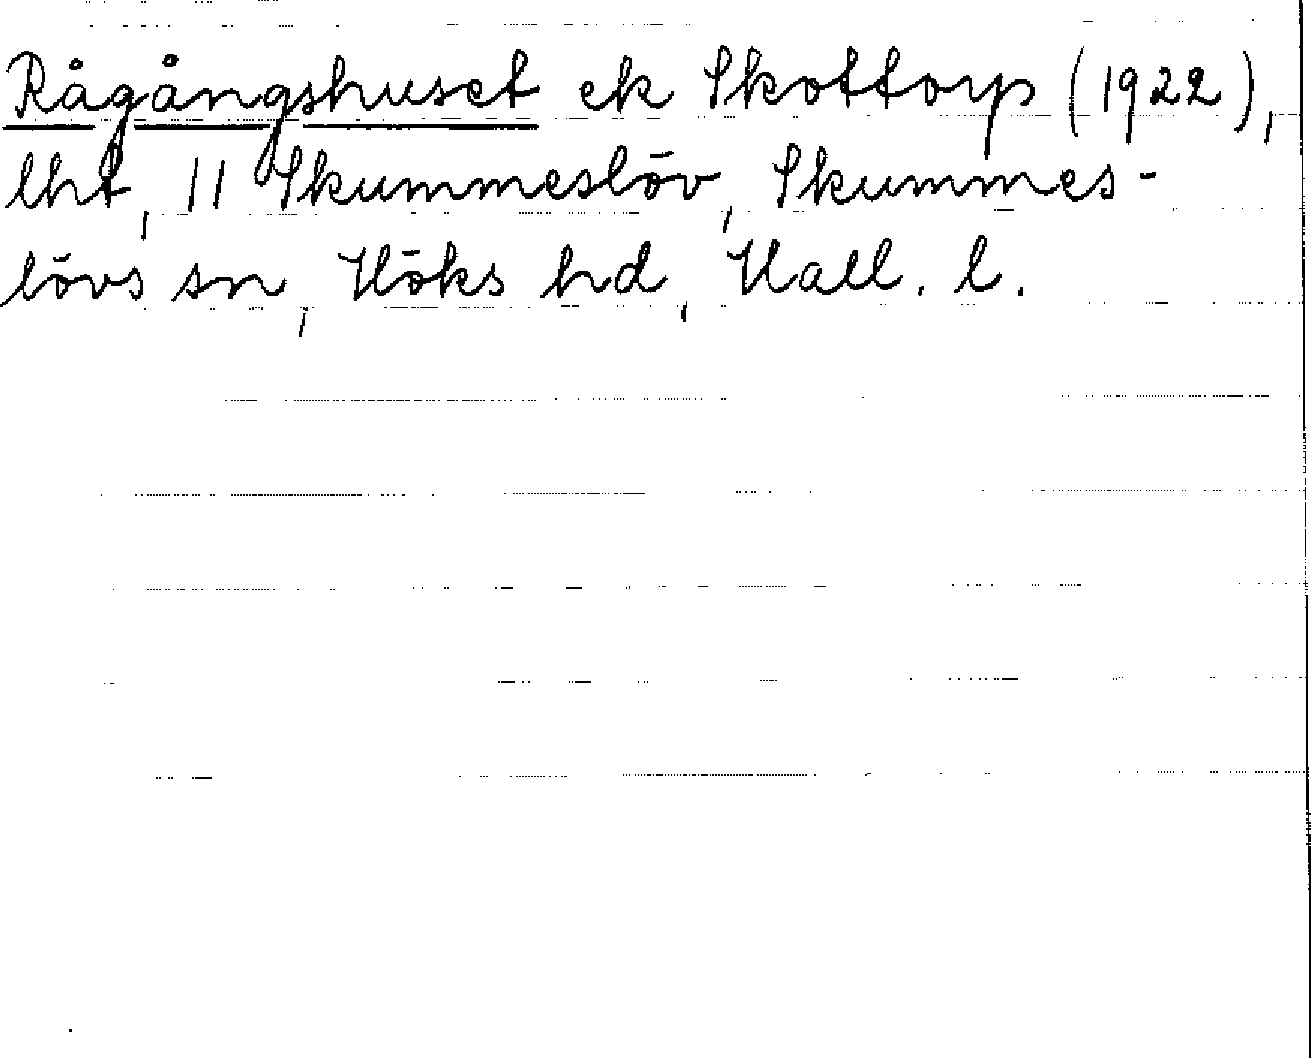 Rågångshuset ek Skottorp (1922),
lht, 11 Skummeslöv, Skummes-
lövs sn, Höks hd, Hall. l.